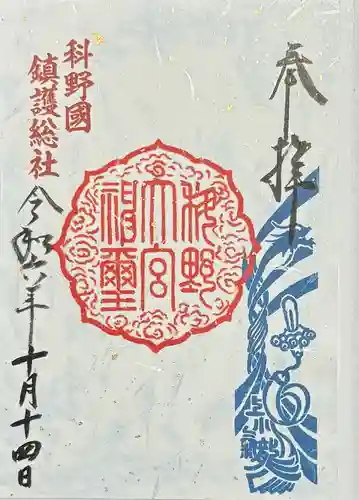 奉拝
科野國
鎮護総社
科野
大宮
神璽
上小
令和六年十月十四日